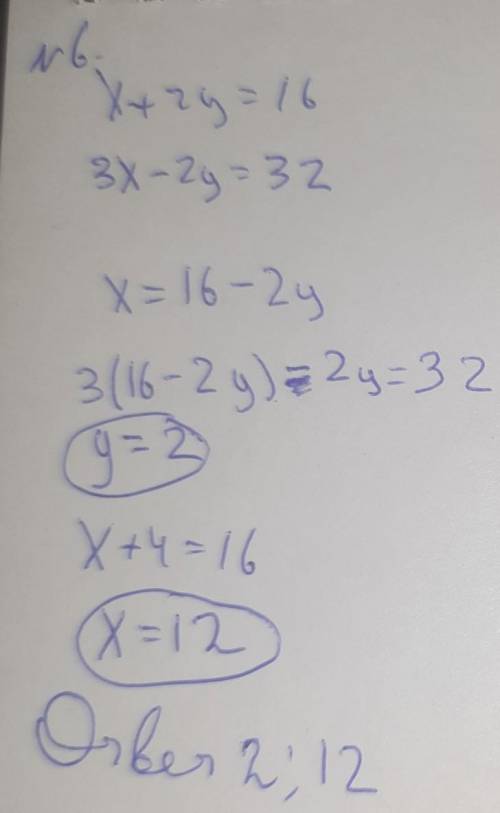 №6.
x+2y=16
3x-2y=32
x=16-2y
3(16-2y)-2y=32
y=2
x+4=16
x=12
Ответ 2;12